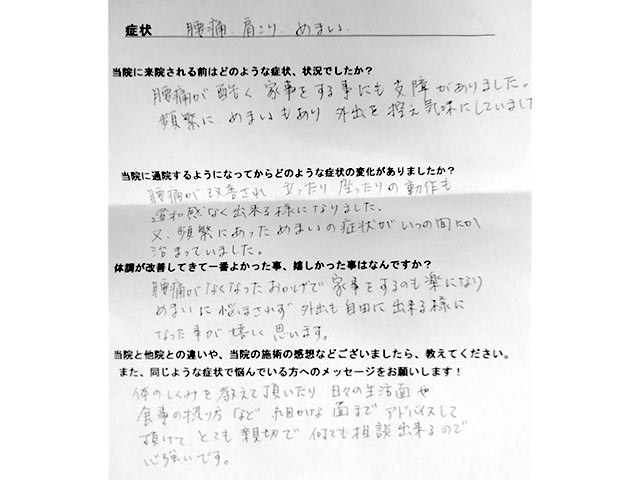 症状 腰痛、肩こり、めまい、
当院に来院される前はどのような症状、状況でしたか？
腰痛が酷く 家事をする事にも支障がありました。
頻繁に、めまいもあり 外出を控え気味にしていまし
当院に通院するようになってからどのような症状の変化がありましたか？
腰痛が改善され 立ったり 座ったりの動作も
違和感なく出来る様になりました。
又、頻繁にあっためまいの症状がいつの間にか
治まっていました。
体調が改善してきて一番よかった事、嬉しかった事はなんですか？
腰痛がなくなったおかげで 家事をするのも楽になり
めまいに悩まされず 外出も自由に出来る様に
なった事が嬉しく思います。
当院と他院との違いや、当院の施術の感想などございましたら、教えてください。
また、同じような症状で悩んでいる方へのメッセージをお願いします！
体のしくみを教えて頂いたり 日々の生活面や
食事の摂り方など 細かな面までアドバイスして
頂けて とても親切で 何でも相談出来るので
心強いです。